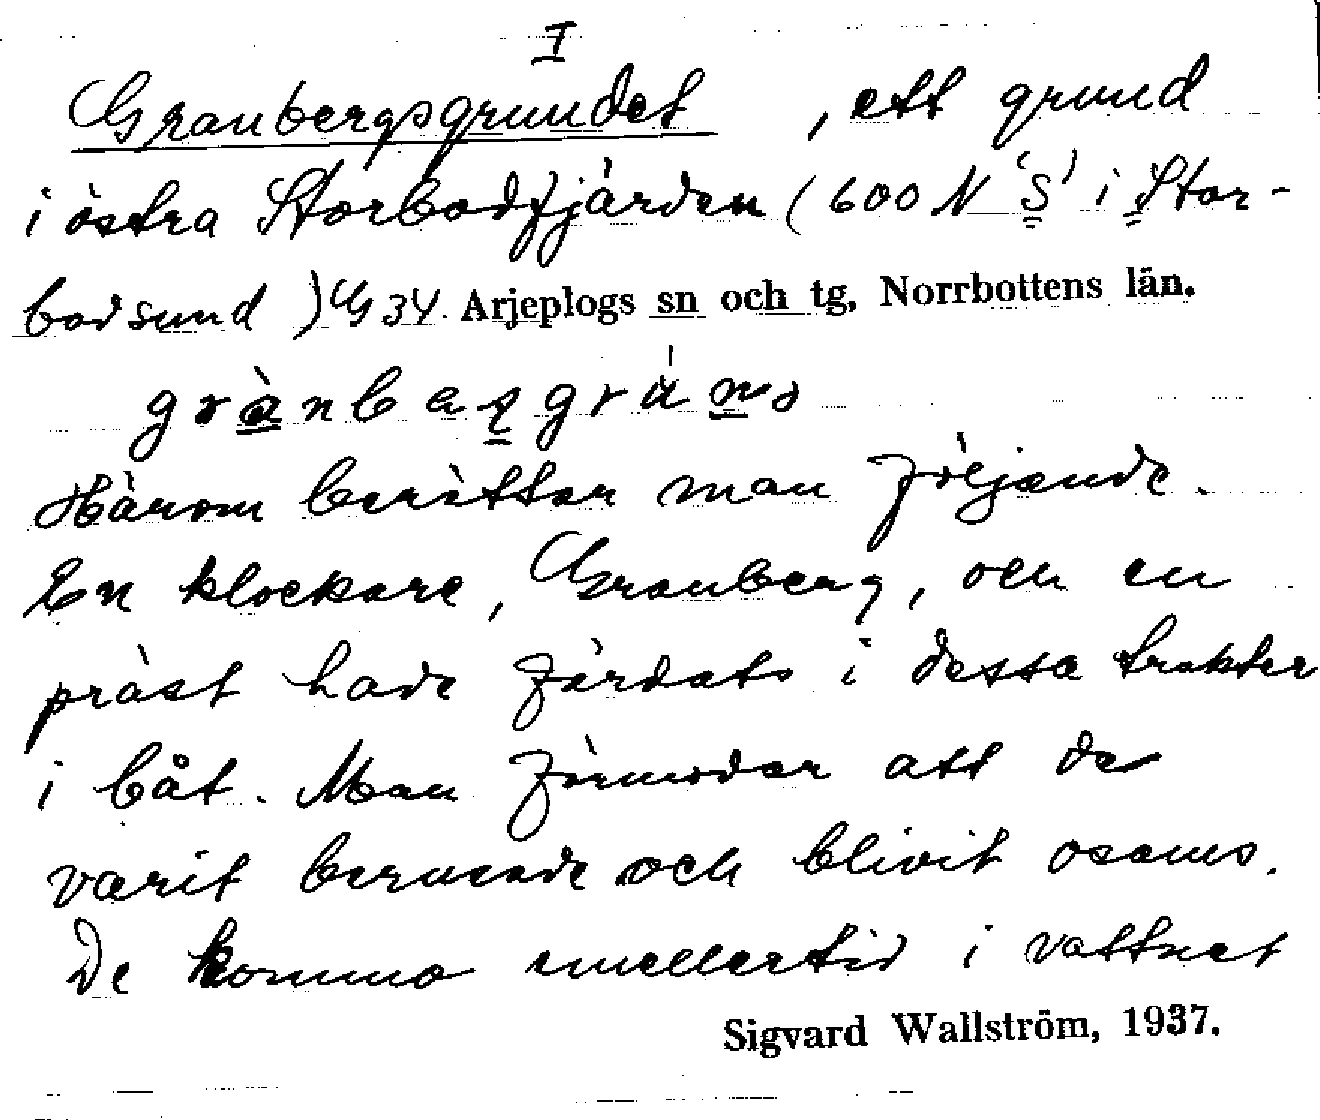 I
Granbergsgrundet, ett grund
i östra Storbodfjärden (600 N 'S' i Stor-
bodsund) G 34 Arjeplogs sn och tg, Norrbottens län.
Härom berättar man följande.
En klockare, Granberg, och en
präst hade färdats i dessa trakter
i båt. Man förmodar att de
varit berusade och blivit osams.
De kommo emellertid i vattnet
Sigvard Wallström, 1937.